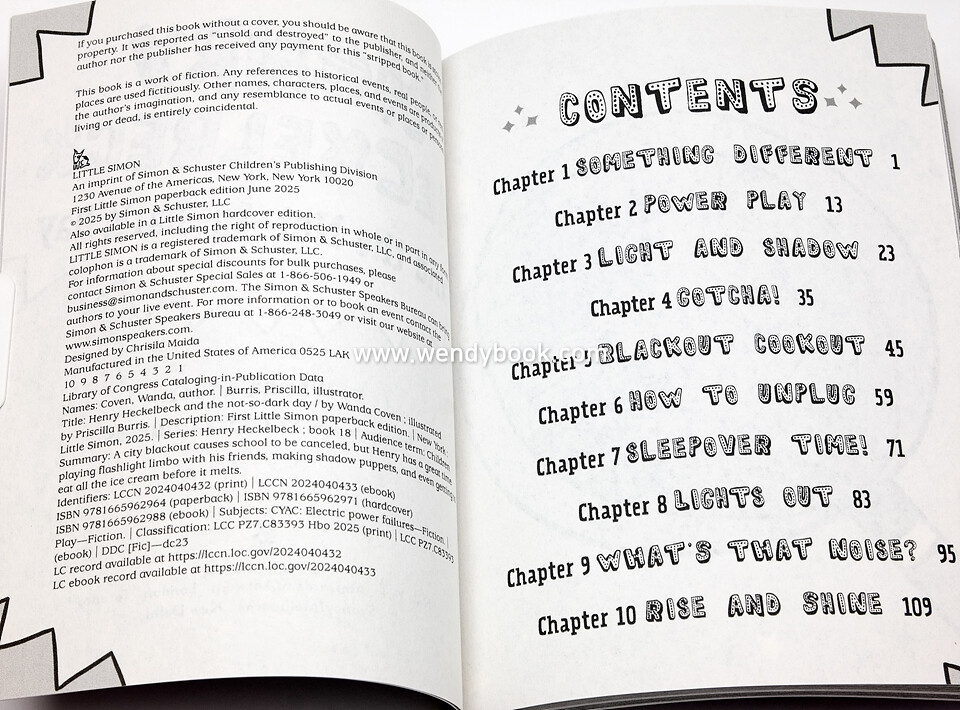 If you purchased this book without a cover, you should be aware that this book is
property. It was reported as "unsold and destroyed" to the publisher, and neither the
author nor the publisher has received any payment for this "stripped book."
This book is a work of fiction. Any references to historical events, real people, or real
places are used fictitiously. Other names, characters, places, and events are products of
the author's imagination, and any resemblance to actual events or places or persons,
living or dead, is entirely coincidental.
LITTLE SIMON
An imprint of Simon & Schuster Children's Publishing Division
1230 Avenue of the Americas, New York, New York 10020
First Little Simon paperback edition June 2025
© 2025 by Simon & Schuster, LLC
Also available in a Little Simon hardcover edition.
All rights reserved, including the right of reproduction in whole or in part in any form.
LITTLE SIMON is a registered trademark of Simon & Schuster, LLC, and associated
colophon is a trademark of Simon & Schuster, LLC.
For information about special discounts for bulk purchases, please
contact Simon & Schuster Special Sales at 1-866-506-1949 or
business@simonandschuster.com. The Simon & Schuster Speakers Bureau can bring
authors to your live event. For more information or to book an event contact the
Simon & Schuster Speakers Bureau at 1-866-248-3049 or visit our website at
www.simonspeakers.com.
Designed by Chrisila Maida
Manufactured in the United States of America 0525 LAK
10 9 8 7 6 5 4 3 2 1
Library of Congress Cataloging-in-Publication Data
Names: Coven, Wanda, author. | Burris, Priscilla, illustrator.
Title: Henry Heckelbeck and the not-so-dark day / by Wanda Coven ; illustrated
by Priscilla Burris. | Description: First Little Simon paperback edition. | New York :
Little Simon, 2025. | Series: Henry Heckelbeck ; book 18 | Audience term: Children
Summary: A city blackout causes school to be canceled, but Henry has a great time
playing flashlight limbo with his friends, making shadow puppets, and even getting to
eat all the ice cream before it melts.
Identifiers: LCCN 2024040432 (print) | LCCN 2024040433 (ebook)
ISBN 9781665962964 (paperback) | ISBN 9781665962971 (hardcover)
ISBN 9781665962988 (ebook) | Subjects: CYAC: Electric power failures—Fiction. |
Play—Fiction. | Classification: LCC PZ7.C83393 Hbo 2025 (print) | LCC PZ7.C83393
(ebook) | DDC [Fic]—dc23
LC record available at https://lccn.loc.gov/2024040432
LC ebook record available at https://lccn.loc.gov/2024040433
CONTENTS
Chapter 1 SOMETHING DIFFERENT 1
Chapter 2 POWER PLAY 13
Chapter 3 LIGHT AND SHADOW 23
Chapter 4 GOTCHA! 35
Chapter 5 BLACKOUT COOKOUT 45
Chapter 6 HOW TO UNPLUG 59
Chapter 7 SLEEPOVER TIME! 71
Chapter 8 LIGHTS OUT 83
Chapter 9 WHAT'S THAT NOISE? 95
Chapter 10 RISE AND SHINE 109
www.wendybook.com